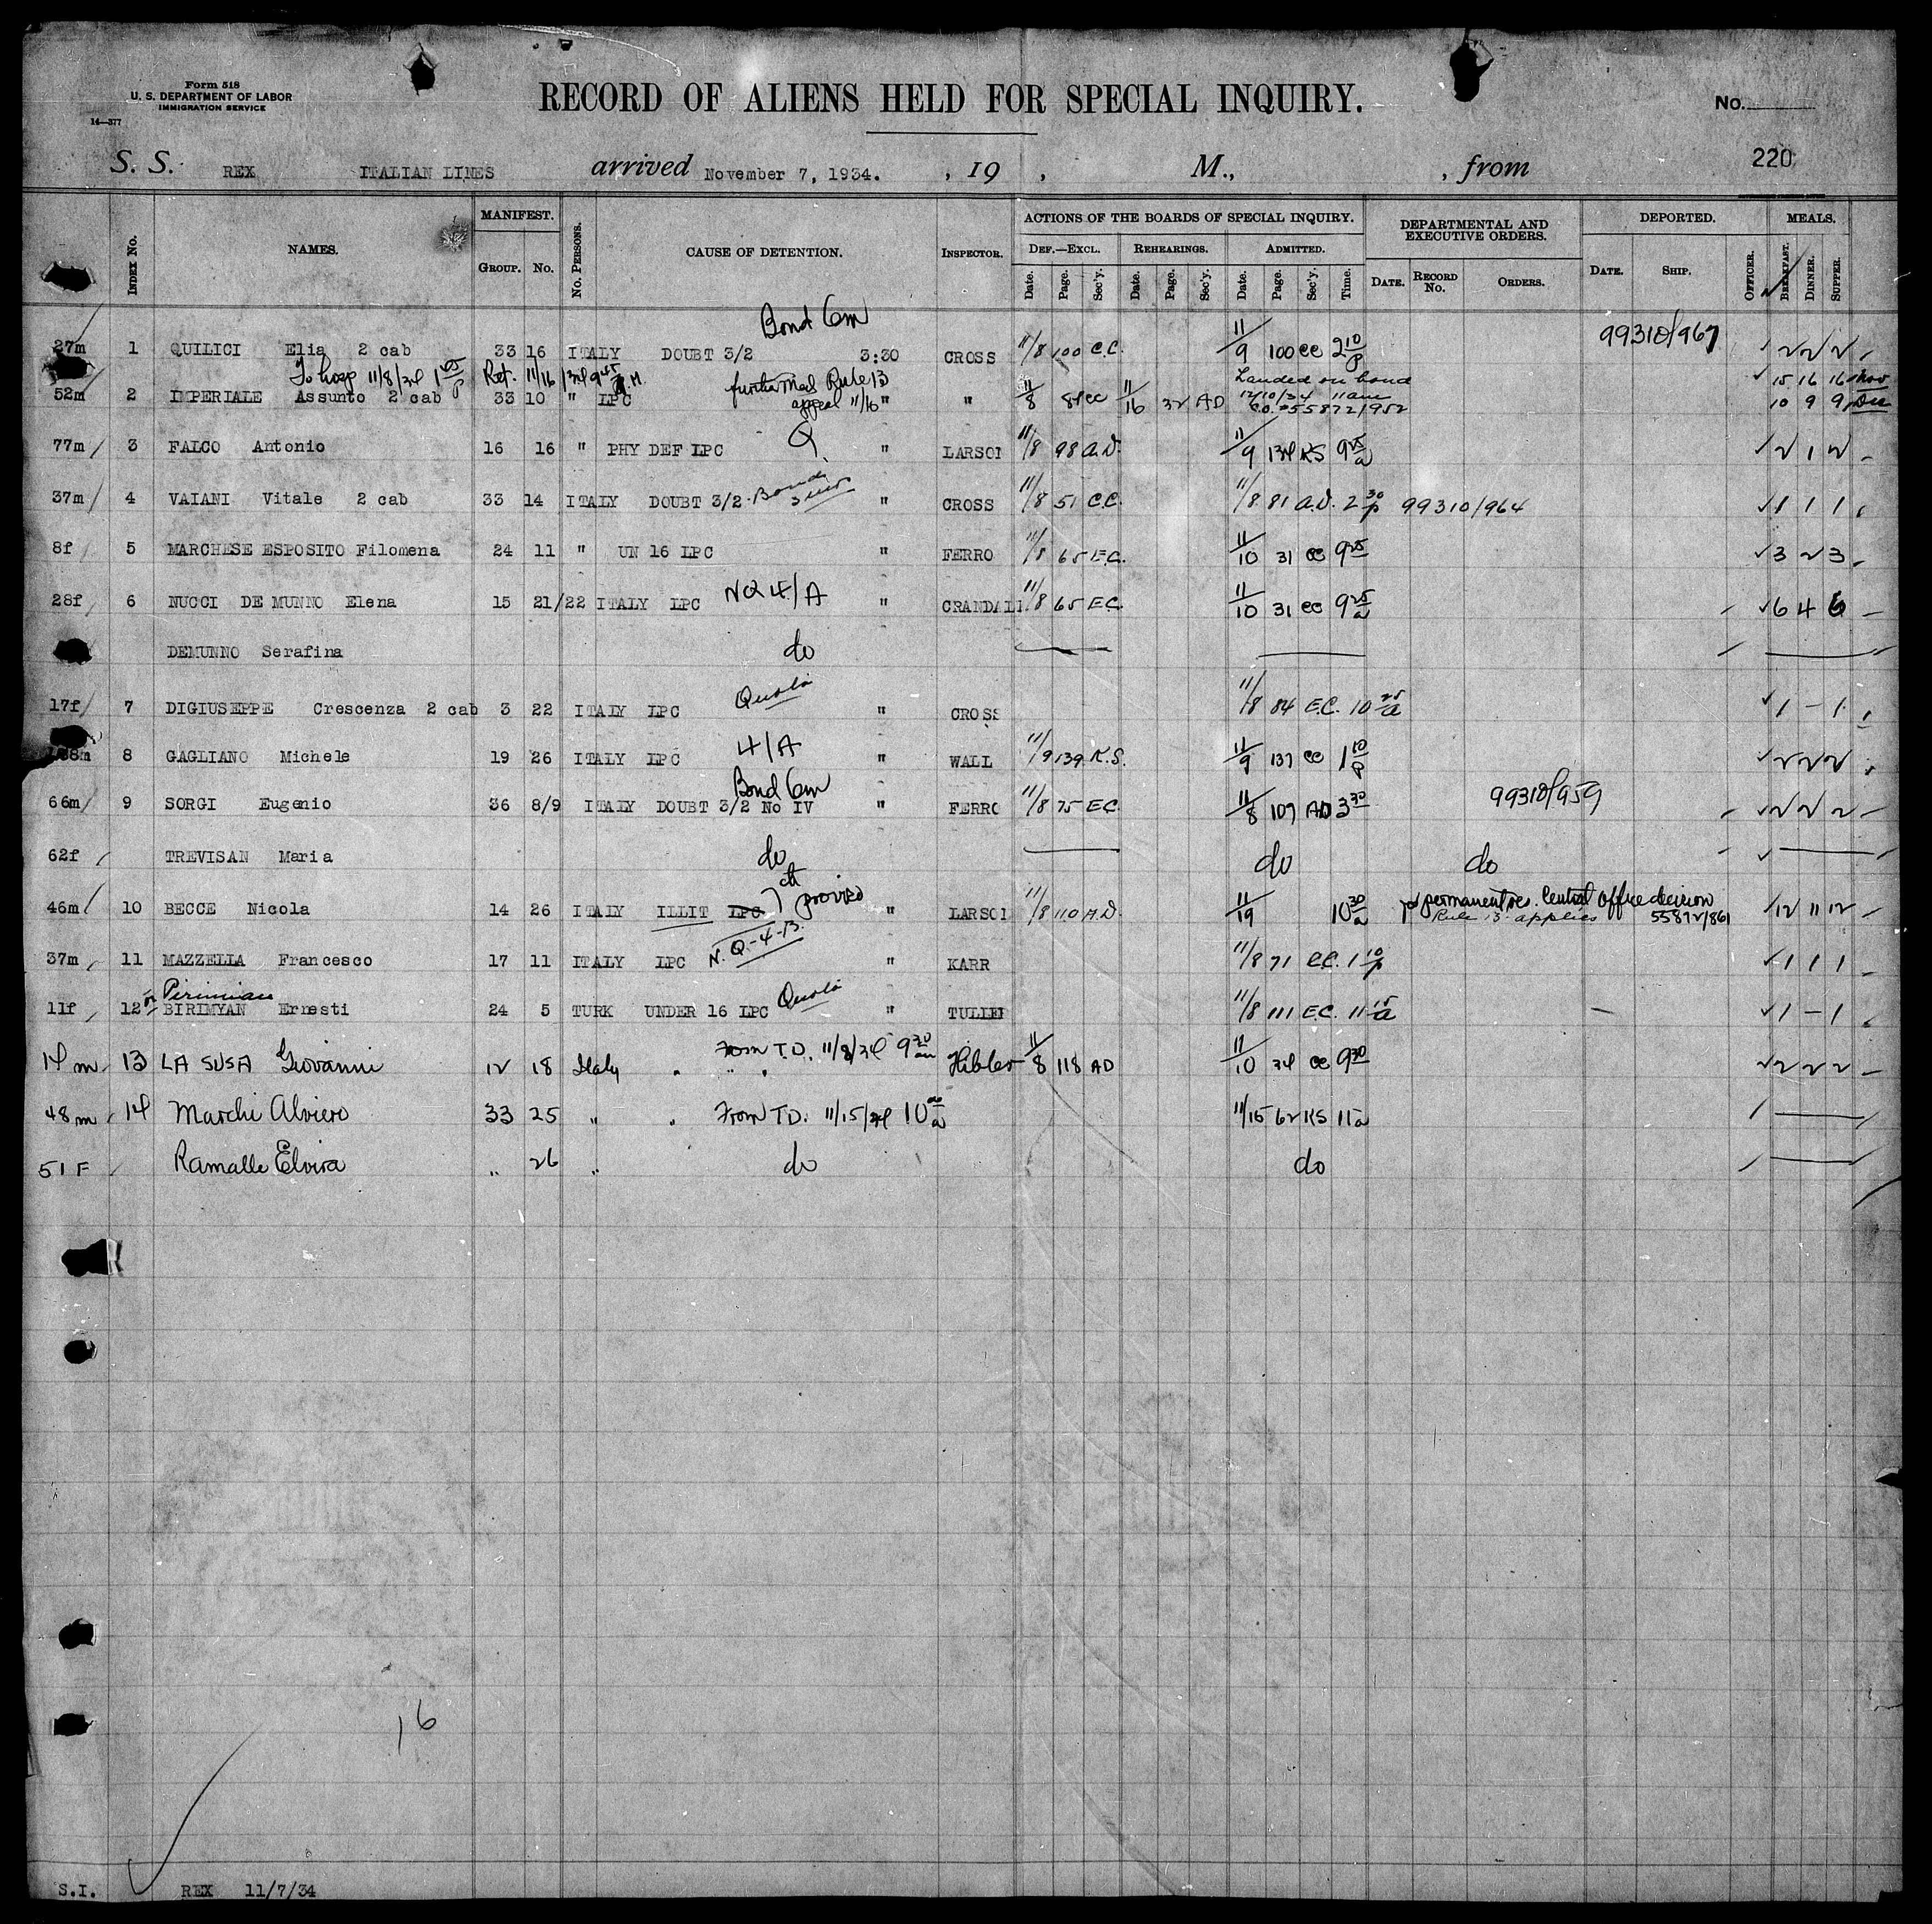 Form 518
U. S. DEPARTMENT OF LABOR
IMMIGRATION SERVICE
14—377
RECORD OF ALIENS HELD FOR SPECIAL INQUIRY.
No.
S. S. REX ITALIAN LINES arrived November 7, 1934. , 19 , M., , from 220
Index No. NAMES. MANIFEST. Group. No. No. Persons. CAUSE OF DETENTION. Inspector. ACTIONS OF THE BOARDS OF SPECIAL INQUIRY. Def.—Excl. Date. Page. Sec'y. Rehearings. Date. Page. Sec'y. Admitted. Date. Page. Sec'y. Time. DEPARTMENTAL AND EXECUTIVE ORDERS. Date. Record No. Orders. DEPORTED. Date. Ship. Officer. MEALS. Breakfast. Dinner. Supper.
Bond 6m
27m 1 QUILICI Elia 2 cab 33 16 ITALY DOUBT 3/2 3:30 CROSS 11/8 100 C.C. 11/9 100 CC 2 10 P 99310/967 2 2 2
To hosp 11/8/34 1 45 P Ret. 11/16/34 9 45 A.M. further Med Rule 13 Landed on bond 15 16 16 Nov
52m 2 IMPERIALE Assunto 2 cab 33 10 " LPC appeal 11/16 " " 11/8 84 CC 11/16 32 AD 12/10/34 11am C.O. #55872/952 10 9 9 Dec
77m 3 FALCO Antonio 16 16 " PHY DEF LPC Q " LARSON 11/8 98 A.D. 11/9 134 KS 9 25 a 2 1 2
37m 4 VAIANI Vitale 2 cab 33 14 ITALY DOUBT 3/2 Bond " CROSS 11/8 51 C.C. 11/8 81 A.D. 2 30 p 99310/964 1 1 1
8f 5 MARCHESE ESPOSITO Filomena 24 11 " UN 16 LPC " FERRO 11/8 65 E.C. 11/10 31 CC 9 25 3 2 3
28f 6 NUCCI DE MUNNO Elena 15 21/22 ITALY LPC NQ 4/A " CRANDALL 11/8 65 E.C. 11/10 31 CC 9 25 a 6 4 6
DEMUNNO Serafina do
17f 7 DIGIUSEPPE Crescenza 2 cab 3 22 ITALY LPC Quota " CROSS 11/8 84 E.C. 10 25 a 1 – 1
8 GAGLIANO Michele 19 26 ITALY LPC 4/A " WALL 11/9 139 K.S. 11/9 137 CC 1 10 P 2 2 2
66m 9 SORGI Eugenio 36 8/9 ITALY DOUBT 3/2 No IV Bond 6m " FERRO 11/8 75 E.C. 11/8 107 AD 3 30 99310/959 2 2 2
62f TREVISAN Maria do do do
46m 10 BECCE Nicola 14 26 ITALY ILLIT LPC 7th proviso " LARSON 11/8 110 A.D. 11/19 10 30 a permanent res. Central Office decision
Rule 13 applies 55872/861 12 11 12
37m 11 MAZZELLA Francesco 17 11 ITALY LPC N.Q.-4-B. " KARR 11/8 71 E.C. 1 10 p 1 1 1
or Pirimian
11f 12 BIRIMYAN Ernesti 24 5 TURK UNDER 16 LPC Quota " TULLEI 11/8 111 E.C. 11 15 a 1 – 1
14 m 13 LA SUSA Giovanni 12 18 Italy " " " From T.D. 11/8/34 9 30 am Hibler 11/8 118 AD 11/10 34 CC 9 30 2 2 2
48 m 14 Marchi Alviero 33 25 " " From T.D. 11/15/34 10 00 a 11/15 62 KS 11 a
51 F Ramalle Elvira " 26 " do do
16
S.I. REX 11/7/34